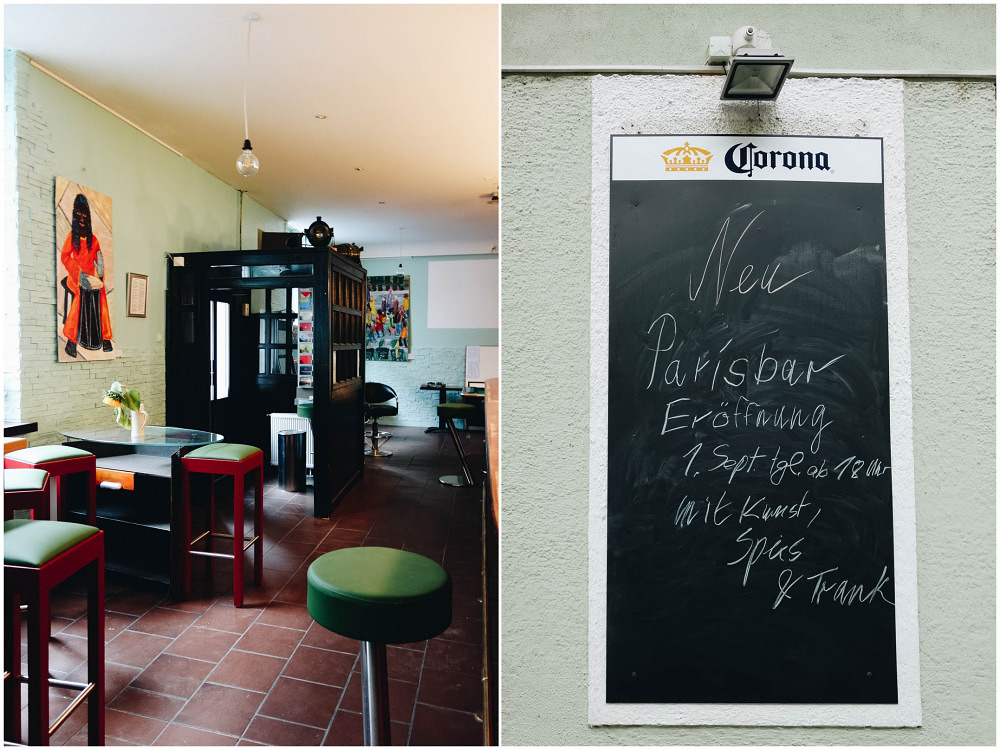 Corona
Neu
Parisbar
Eröffnung
1. Sept tgl. ab 18 Uhr
mit Kunst,
Speis
& Trank